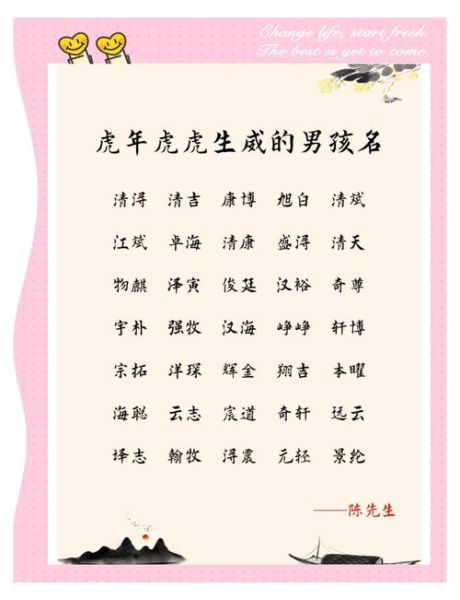 Change life, start fresh.
The best is yet to come.
虎年虎虎生威的男孩名
清浔 清吉 康博 旭白 清斌
江斌 卓海 清康 盛浔 清天
物麒 泽寅 俊廷 汉裕 奇尊
宇朴 强牧 汉海 峥峥 轩博
宗拓 洋琛 辉金 翔吉 本曜
海聪 云志 宸道 奇轩 远云
译志 翰牧 浔震 元轻 景纶
——陈先生